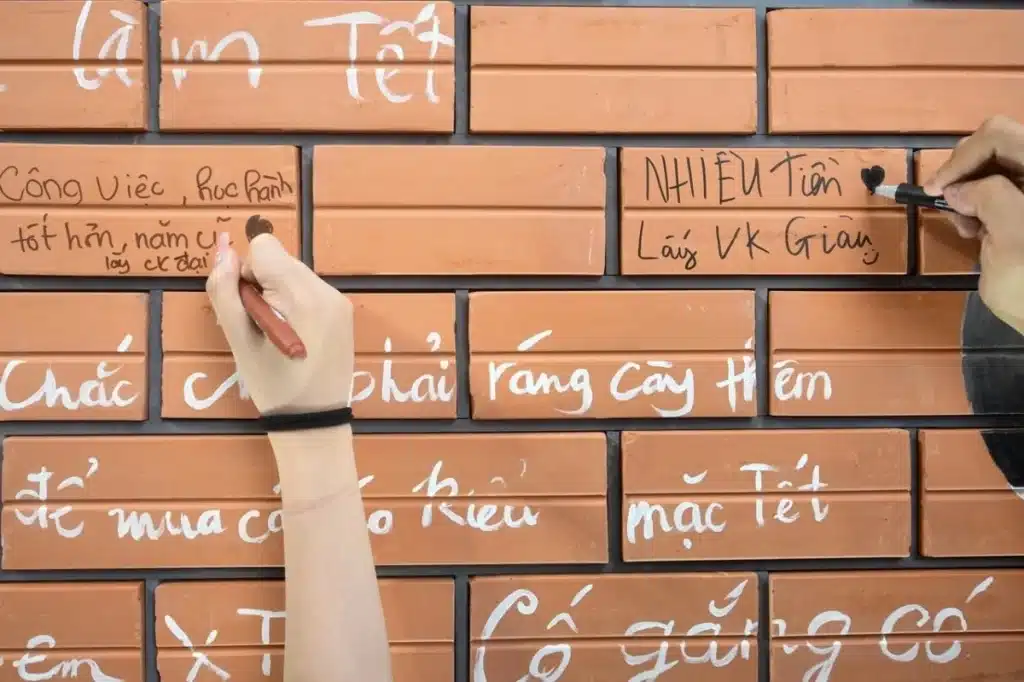 làm Tết
Công việc, học hành
tốt hơn, năm cũ
lấy ck đại
NHIỀU Tiền
Lấy VK Giàu
Chắc phải ráng cày thêm
để mua cái áo kiểu mặc Tết
em X
Cố gắng có